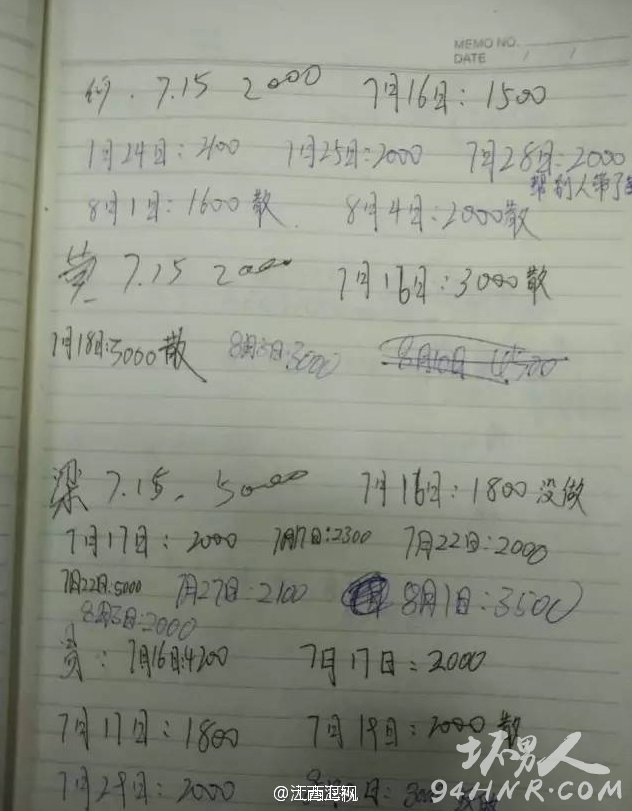 MEMO NO.
DATE / /
7.15 2000 7月16日:1500
1月24日:2100 1月25日:2000 7月28日:2000
帮别人带了
8月1日:1600散 8月4日:2000散
黄 7.15 2000 7月16日:3000散
7月18日:3000散 8月3日:3000 8月10日
梁 7.15. 5000 7月16日:1800没做
7月17日:2000 7月17日:2300 7月22日:2000
7月22日:5000 7月27日:2100 8月1日:3500
8月3日:2000
7月16日:4200 7月17日:2000
7月17日:1800 7月19日:2000散
7月29日:2000
@江西逗枫
坏男人
94HNR.COM